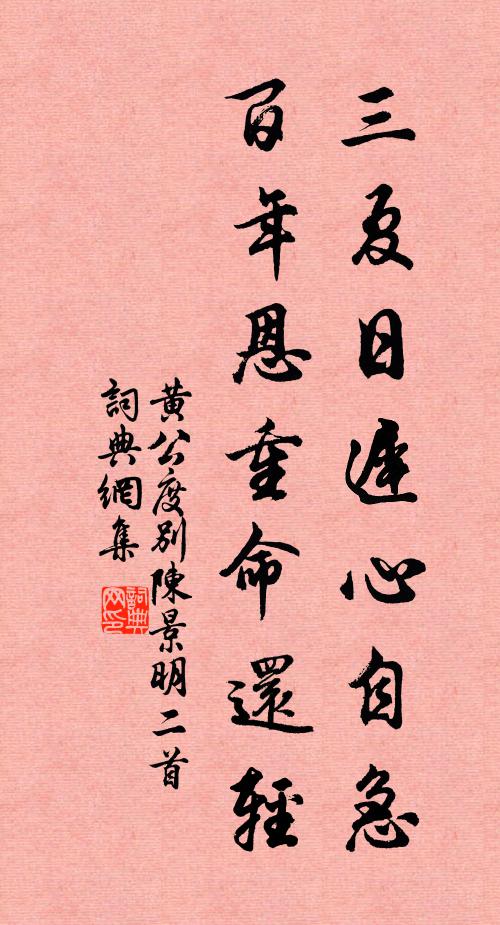 三夏日遲心自急
百年恩重命還輕
黄公度别陳景明二首
詞典網集
詞典网印